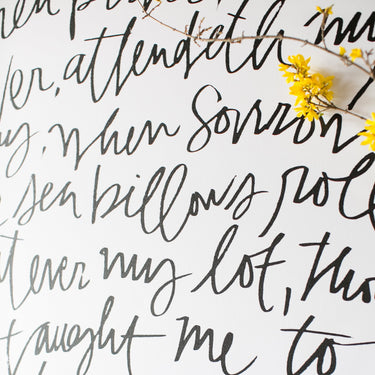 er, attendeth m
y, when sorrow
sea billows roll
t ever my lot, tho
t taught me to